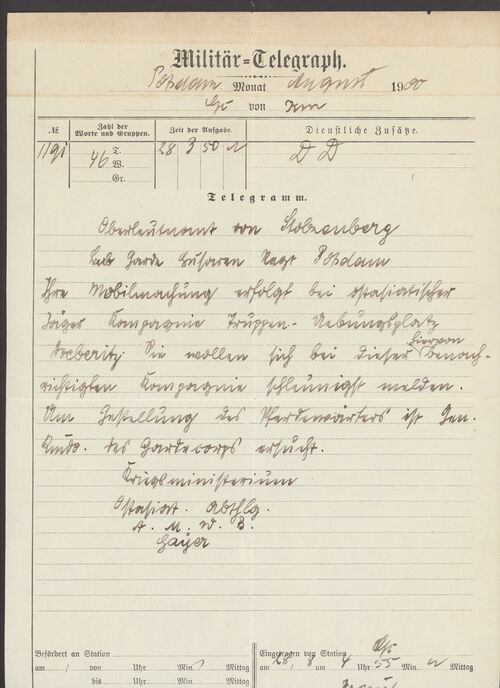 Militär=Telegraph.
Potsdam Monat August 1900
von
№ Zahl der Worte und Gruppen. Zeit der Aufgabe. Dienstliche Zusätze.
1191 46 T. W. Gr. 28 3 50 N D D
Telegramm.
Oberleutnant von Stolzenberg
Leib Garde Husaren Regt Potsdam
Ihre Mobilmachung erfolgt bei ostasiatischer
Jäger Kompagnie Truppen-Uebungsplatz
Doeberitz Sie wollen sich bei dieser hiervon benach-
richtigten Kompagnie schleunigst melden.
Um Gestellung des Pferdewärters ist Gen.
Kmdo. des Gardecorps ersucht.
Kriegsministerium
Ostasiat. Abthlg.
A. M. d. B.
Gayer
Befördert an Station
am / von Uhr. Min. Mittag
bis Uhr. Min. Mittag
Eingegangen von Station
am 28/8 4 Uhr. 55 Min. N Mittag